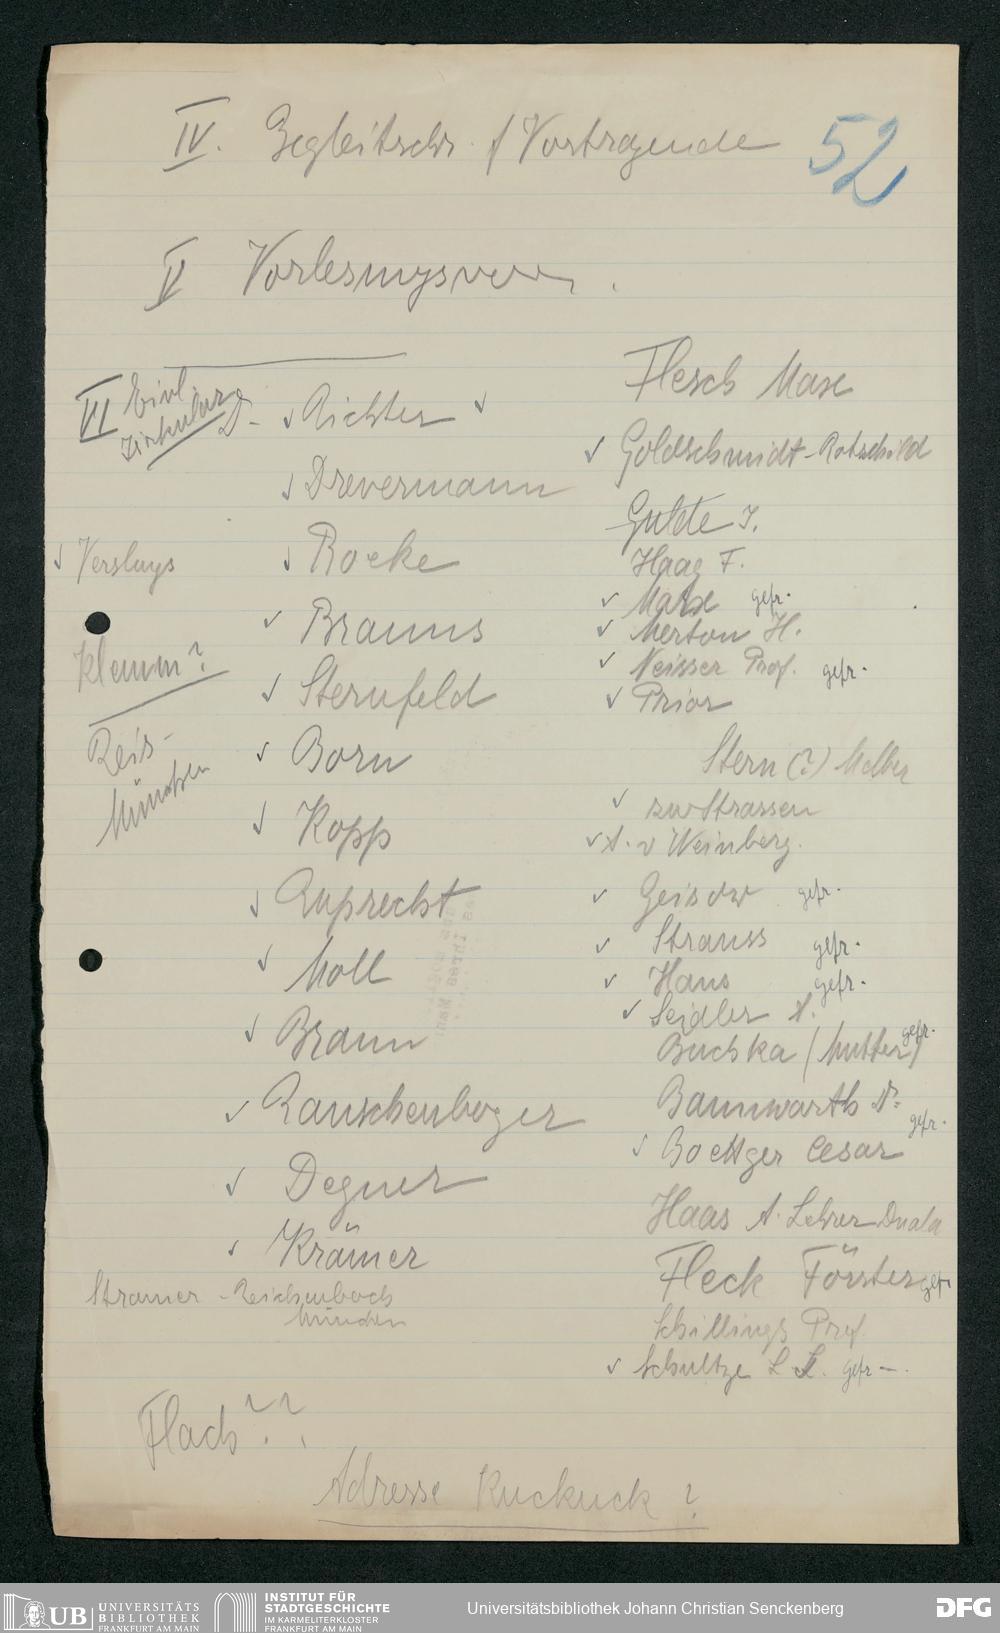 IV. Begleitschr. f Vortragende
52
V Vorlesungsverz.
VI Einl.
Zirkular
D. ✓ Richter ✓
✓ Drevermann
✓ Versluys
✓ Boeke
✓ Brauns
Klemm?
✓ Sternfeld
Reis-
München
✓ Born
✓ Kopp
✓ Ruprecht
✓ Moll
✓ Braun
✓ Rauschenberger
✓ Degner
✓ Krämer
Stromer - Reichenbach
München
Flesch Max
✓ Goldschmidt-Rotschild
Gulde J.
Haag F.
✓ Marx gefr.
✓ Merton H.
✓ Neisser Prof. gefr.
✓ Prior
Stern (?) Melber
✓ zur Strassen
✓ A. v Weinberg.
✓ gefr.
✓ Strauss gefr.
✓ Haus gefr.
✓ Seidler A.
Buchka (Mutter) gefr.
Bannwarth Dr. gefr.
✓ Boettger Cesar
Haas A. Lehrer Duala
Fleck Förster gefr.
Schillings Prof.
✓ Schultze L. gefr.
Flach??
Adresse Kuckuck?
UB UNIVERSITÄTS
BIBLIOTHEK
FRANKFURT AM MAIN
INSTITUT FÜR
STADTGESCHICHTE
IM KARMELITERKLOSTER
FRANKFURT AM MAIN
Universitätsbibliothek Johann Christian Senckenberg
DFG